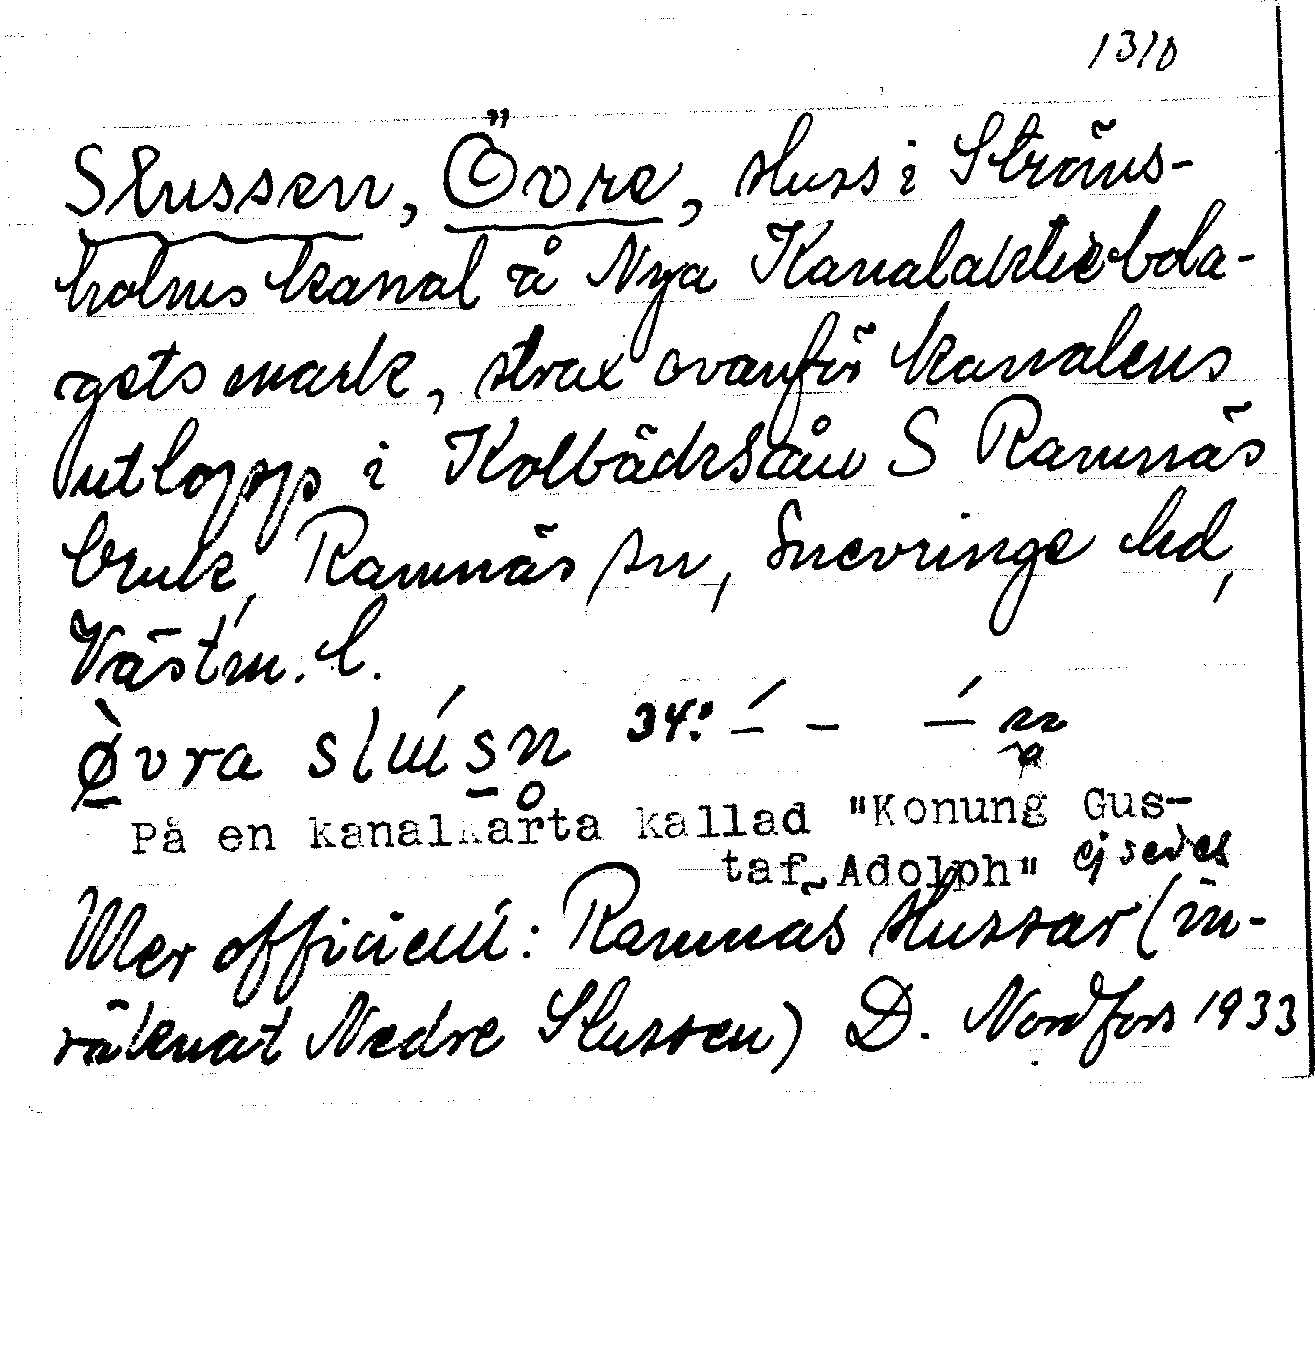 1310
Slussen, Övre, sluss i Ströms-
holms kanal å Nya Kanalaktiebola-
gets mark, strax ovanför kanalens
utlopp i Kolbäcksån S Ramnäs
bruk, Ramnäs sn, Snevringe hd,
Västm. l.
34:
På en kanalkarta kallad "Konung Gus-
taf Adolph" ej sedes
Mer officiell: Ramnäs slussar (in-
räknat Nedre Slussen) D. Nordfors 1933